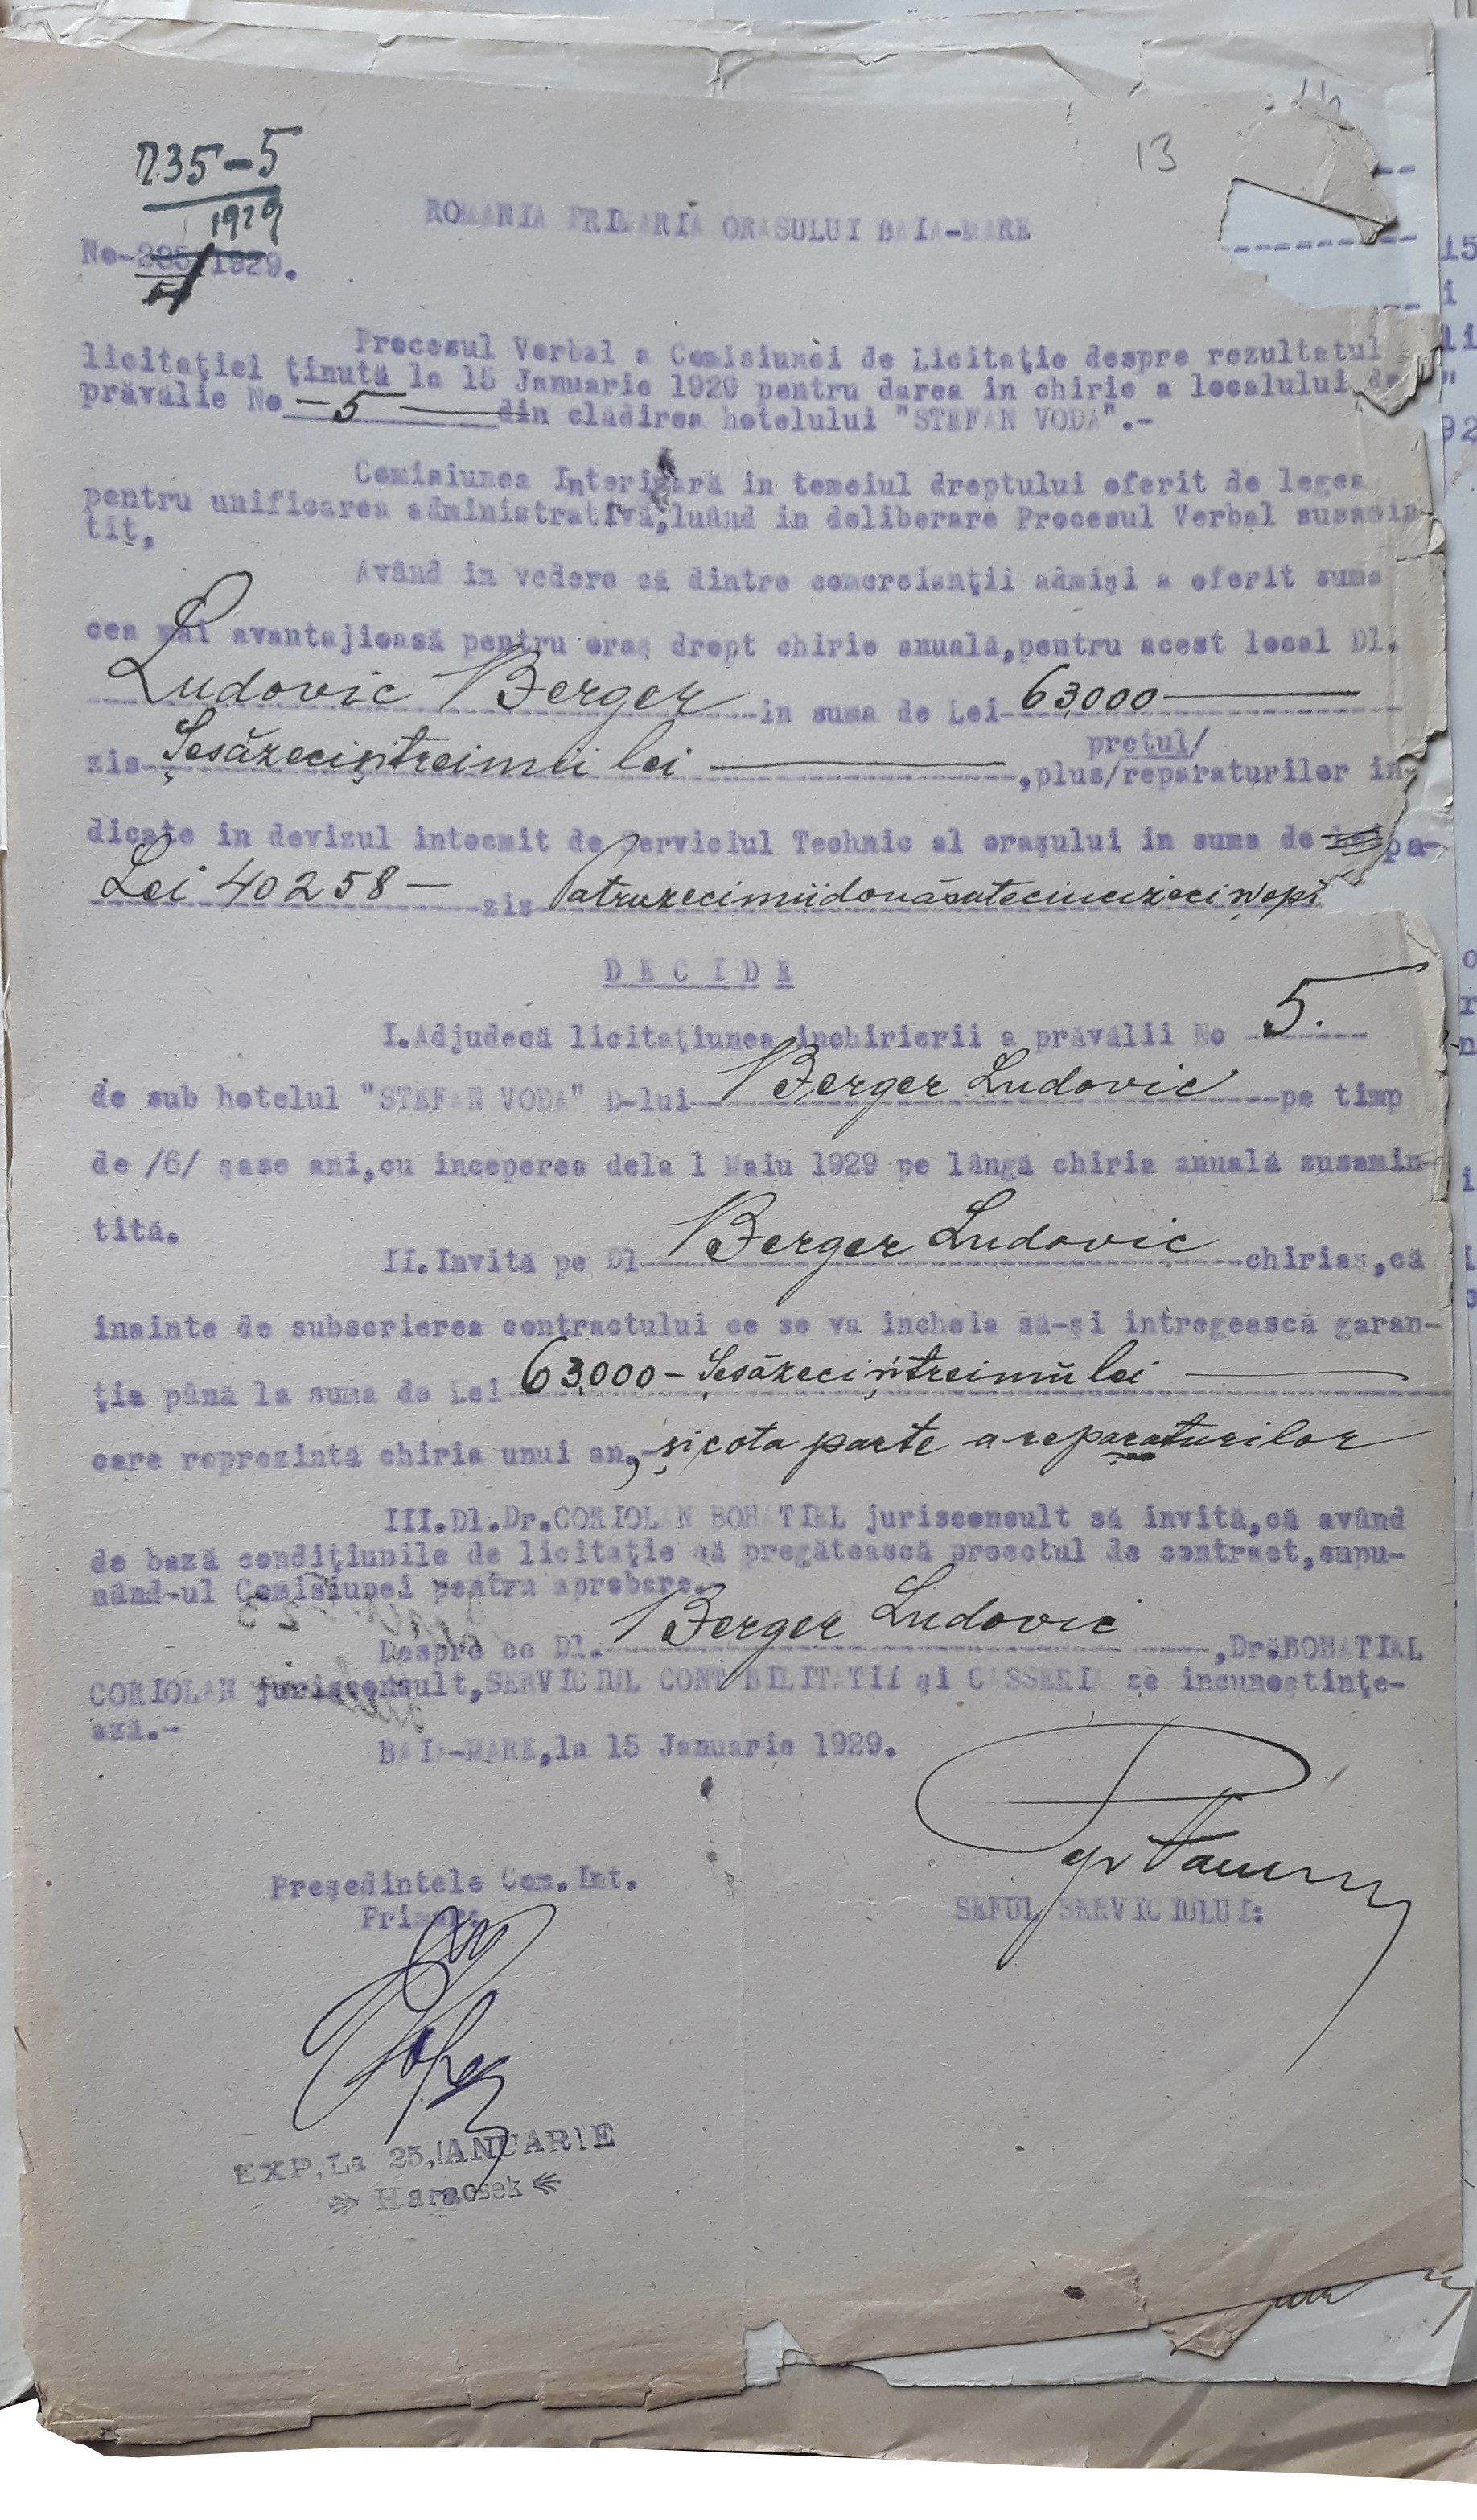 13
235-5
1929
ROMANIA PRIMARIA ORASULUI BAIA-MARE
No-235/1929.
Procesul Verbal a Comisiunei de Licitație despre rezultatul
licitației ținută la 15 Januarie 1929 pentru darea in chirie a localului de
prăvălie No -5- din clădirea hotelului "STEFAN VODA".-
Comisiunea Interimară in temeiul dreptului oferit de legea
pentru unificarea administrativă,luând in deliberare Procesul Verbal susamin-
tit,
Având in vedere că dintre comercianții admiși a oferit suma
cea mai avantajioasă pentru oraș drept chirie anuală,pentru acest local Dl.
Ludovic Berger in suma de Lei 63,000
prețul/
zis Șesăzecișitreimii lei ,plus/reparaturilor in-
dicate in devizul intocmit de Serviciul Technic al orașului in suma de
Lei 40258- zis Patruzecimiidouăsutecincizecișiopt
DECIDE
I.Adjudecă licitațiunea inchirierii a prăvălii No 5.
de sub hotelul "STEFAN VODA" D-lui Berger Ludovic pe timp
de /6/ șase ani,cu inceperea dela 1 Maiu 1929 pe lângă chiria anuală susamin-
tită.
II.Invită pe Dl Berger Ludovic chiriaș,că
inainte de subscrierea contractului ce se va incheia să-și intregească garan-
ția până la suma de Lei 63,000- Șesăzecișitreimii lei
care reprezintă chiria unui an, și cota parte a reparaturilor
III.Dl.Dr.CORIOLAN BOHATIEL jurisconsult să invită,că având
de bază condițiunile de licitație să pregătească proectul de contract,supu-
nând-ul Comisiunei pentru aprobare.
Despre ce Dl. Berger Ludovic ,Dr.BOHATIEL
CORIOLAN jurisconsult,SERVICIUL CONTABILITATII și CASSERIA se incunoștințe-
ază.-
BAIA-MARE,la 15 Januarie 1929.
Președintele Com.Int.
Primar:
SEFUL SERVICIULUI:
EXP.La 25,IANUARIE
Haracsek